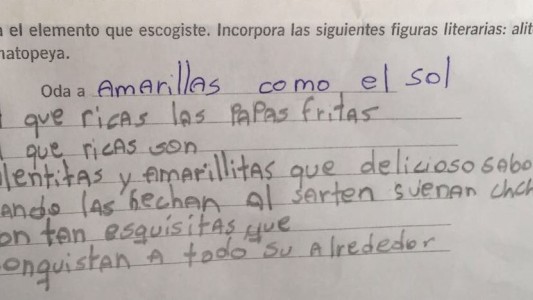 el elemento que escogiste. Incorpora las siguientes figuras literarias: alit
natopeya.
Oda a Amarillas como el sol
que ricas las papas fritas
que ricas son
lentitas y amarillitas que delicioso sabo
ando las hechan al sarten suenan chch
on tan esquisitas que
onquistan a todo su alrededor